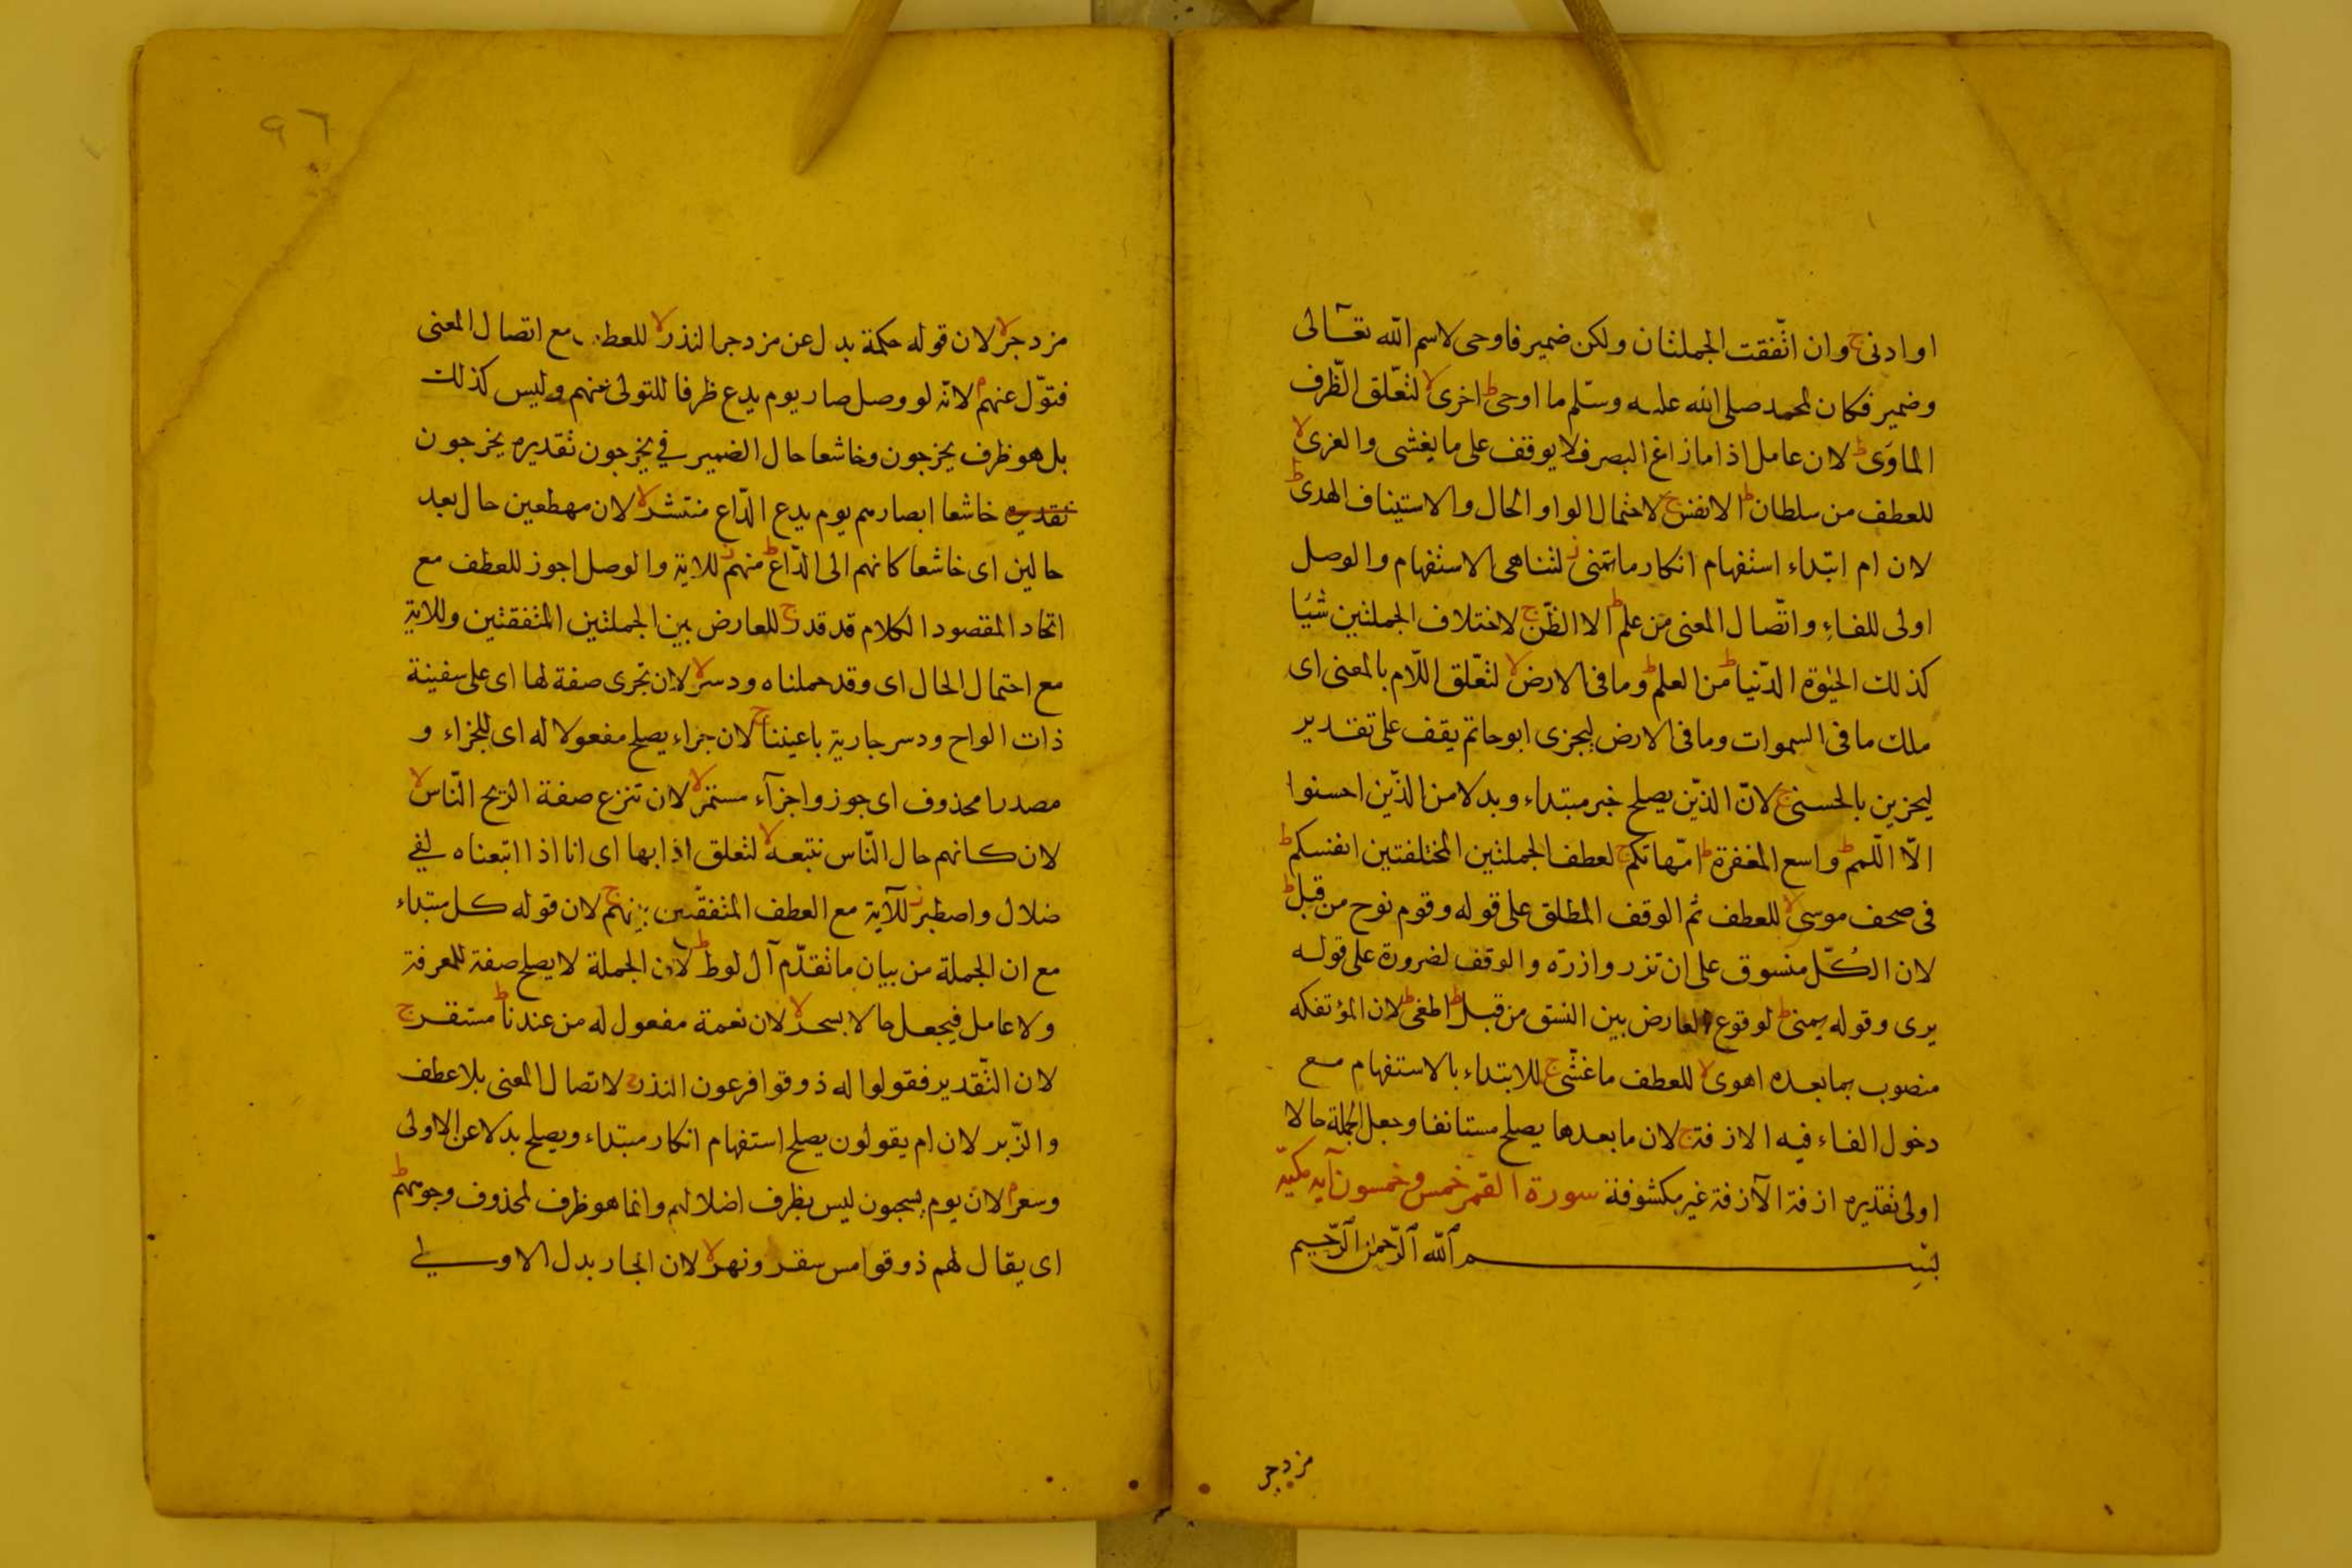 او ادنى ج وان اتّفقت الجملتان ولكن ضمير فاوحى لاسم الله تعالى
وضمير فكان لمحمد صلى الله عليه وسلّم ما اوحى ط اخرى لا لتعّلق الظّرف
الماوَى ط لان عامل اذا ما زاغ البصر فلا يوقف على ما يغشى والعزى لا
للعطف من سلطان ط الانفس ج لاحتمال الواو الحال والاستيناف الهدى ط
لان ام ابتداء استفهام انكار ما تمنى ز لتناهى الاستفهام والوصل
اولى للفاءِ واتّصال المعنى من علم ط الا الظّن ج لاختلاف الجملتين شيَا
كذلك الحيوة الدّنيا ط من العلم ط وما فى الارض لا لتعّلق اللّام بالمعنى اى
ملك ما فى السموات وما فى الارض ليجزى ابو حاتم يقف على تقدير
ليجزين بالحسنى ج لانّ الذّين يصلح خبر مبتداء وبدلا من الذّين احسنوا
الّا اللّمم ط واسع المغفرة ط امّهاتكم ج لعطف الجملتين المختلفتين انفسكم ط
فى صحف موسى لا للعطف ثم الوقف المطلق على قوله وقوم نوح من قبل ط
لان الكُلّ منسوق على ان تزر وازرة والوقف لضرورة على قوله
يرى وقوله يمنى ط لوقوع العارض بين النسق من قبل ط اطغى ط لان المؤتفكه
منصوب بما بعده اهوى لا للعطف ما غشّى ج للابتداء بالاستفهام مع
دخول الفاء فيه الازفة ج لان ما بعدها يصلح مستانفا وجعل الجملة حالا
اولى تقديره ازفة الآزفة غير مكشوفة سورة القمر خمس وخمسون آية مكيّة
بسم الله الرّحمن الرّحيم
مزدجر
٩٦
مزدجر لا لان قوله حكمة بدل عن مزدجر النذر لا للعطف مع اتصال المعنى
فتوّل عنهم م لانّه لو وصل صار يوم يدع ظرفا للتولى عنهم وليس كذلك
بل هو ظرف يخرجون وخاشعا حال الضمير في يخرجون تقديره يخرجون
تقديره خاشعا ابصارهم يوم يدع الدّاع منتشر لا لان مهطعين حال بعد
حالين اى خاشعا كانهم الى الدّاع ط منهم ز للاية والوصل اجوز للعطف مع
اتحاد المقصود الكلام قد قدر ج للعارض بين الجملتين المتفقتين وللاية
مع احتمال الحال اى وقد حملناه ودسر لا لان تجرى صفة لها اى على سفينة
ذات الواح ودسر جارية باعيننا ج لان جزاء يصلح مفعولا له اى للجزاء و
مصدرا محذوف اى جوزوا جزآء مستمر لا لان تنزع صفة الريح النّاس لا
لان كانهم حال النّاس نتبعه لا لتعلق اذا بها اى انا اذا اتبعناه لفي
ضلال واصطبر ز للآية مع العطف المتفقتين بينهم ج لان قوله كل مبتداء
مع ان الجملة من بيان ما تقدّم آل لوط ط لان الجملة لا يصلح صفة للمعرفة
ولا عامل فيجعل حالا بسحر لا لان نعمة مفعول له من عندنا ط مستقر ج
لان التّقدير فقولوا له ذوقوا فرعون النذر ج لاتصال المعنى بلا عطف
والزّبر لان ام يقولون يصلح استفهام انكار مبتداء ويصلح بدلا عن الاولى
وسعر م لان يوم يسحبون ليس بظرف اضلالهم وانما هو ظرف لمحذوف وجوههم ط
اى يقال لهم ذوقوا مس سقر ونهر لا لان الجار بدل الاولى